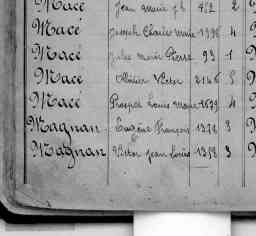 Macé Jean marie 2
Macé Joseph Charles marie 1396 4
Macé Jules marie Pierre 93 1
Macé Victor 2146 5
Macé Prosper Louis marie 1679 4
Magnan Eugène François 1372 3
Magnan Victor Jean Louis 1358 3